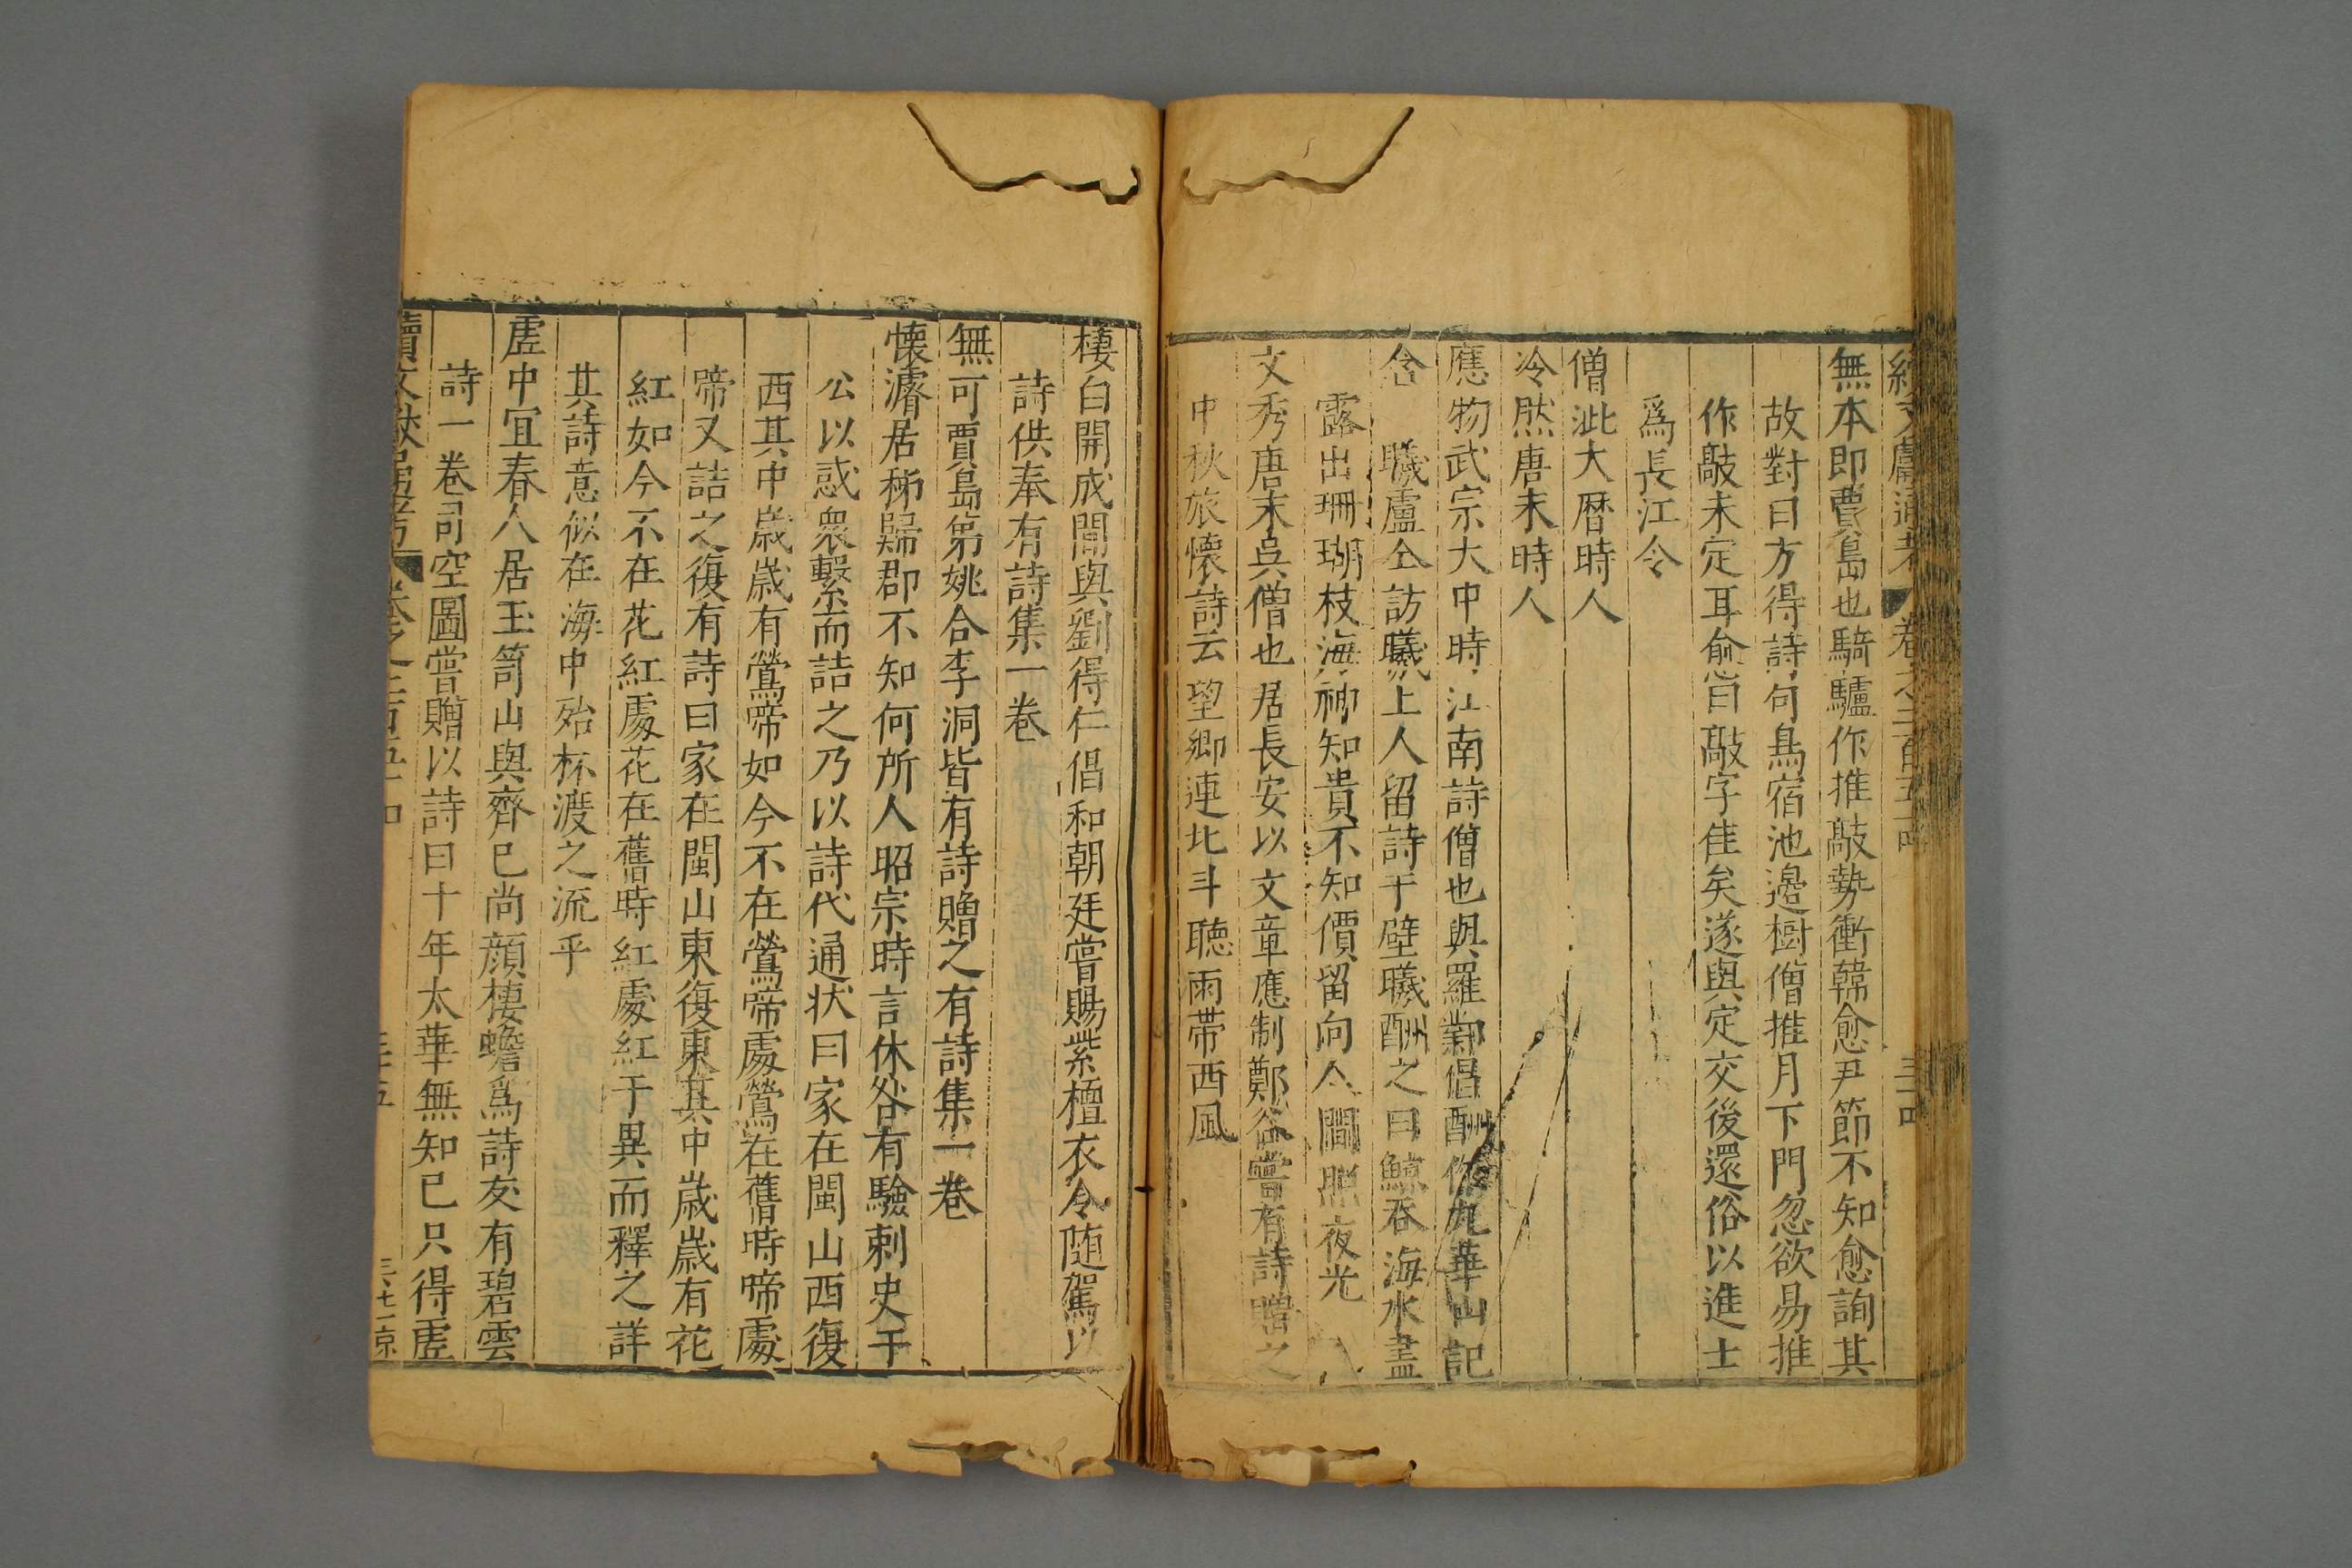 續文獻通考 卷之二百五十四 三十四
無本即賈島也騎驢作推敲勢衝韓愈尹節不知愈詢其
故對曰方得詩句鳥宿池邊樹僧推月下門忽欲易推
作敲未定耳愈曰敲字佳矣遂與定交後還俗以進士
爲長江令
僧泚大曆時人
冷然唐末時人
應物武宗大中時江南詩僧也與羅鄴倡酬作九華山記
含曦盧仝訪曦上人留詩于壁曦酬之曰鯨吞海水盡
露出珊瑚枝海神知貴不知價留向人間照夜光
文秀唐末吳僧也居長安以文章應制鄭谷嘗有詩贈之
中秋旅懷詩云望鄉連北斗聽雨帶西風
棲白開成間與劉得仁倡和朝廷嘗賜紫檀衣令随駕以
詩供奉有詩集一卷
無可賈島第姚合李洞皆有詩贈之有詩集一卷
懷濬居秭歸郡不知何所人昭宗時言休咎有驗刺史于
公以惑衆繫而詰之乃以詩代通狀曰家在閩山西復
西其中歲歲有鶯啼如今不在鶯啼處鶯在舊時啼處
啼又詰之復有詩曰家在閩山東復東其中歲歲有花
紅如今不在花紅處花在舊時紅處紅于異而釋之詳
其詩意似在海中殆杯渡之流乎
虛中宜春人居玉笥山與齊已尚顔棲蟾爲詩友有碧雲
詩一卷司空圖嘗贈以詩曰十年太華無知已只得虛
續文献通考 卷之二百五十四 三十五